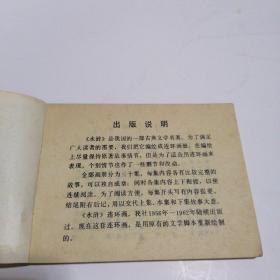 出版说明
《水浒》是我国的一部古典文学名著。为了满足
广大读者的需要，我们把它编绘成连环画。在编绘
上尽量保持原著故事情节，但是为了适合用连环画来
表现，个别情节也作了一些删节和改动。
全部画册分为三十集，每集内容各有比较完整的
故事，可以独自成章；同时各集内容上下衔接，以便
连续阅读。为了阅读方便，每集开头写有内容提要，
结尾附有后记，用以交代上集、本集和下集故事大意。
《水浒》连环画，我社1956年—1962年陆续出版
过。现在这套连环画，是用原有的文学脚本重新绘制
的。